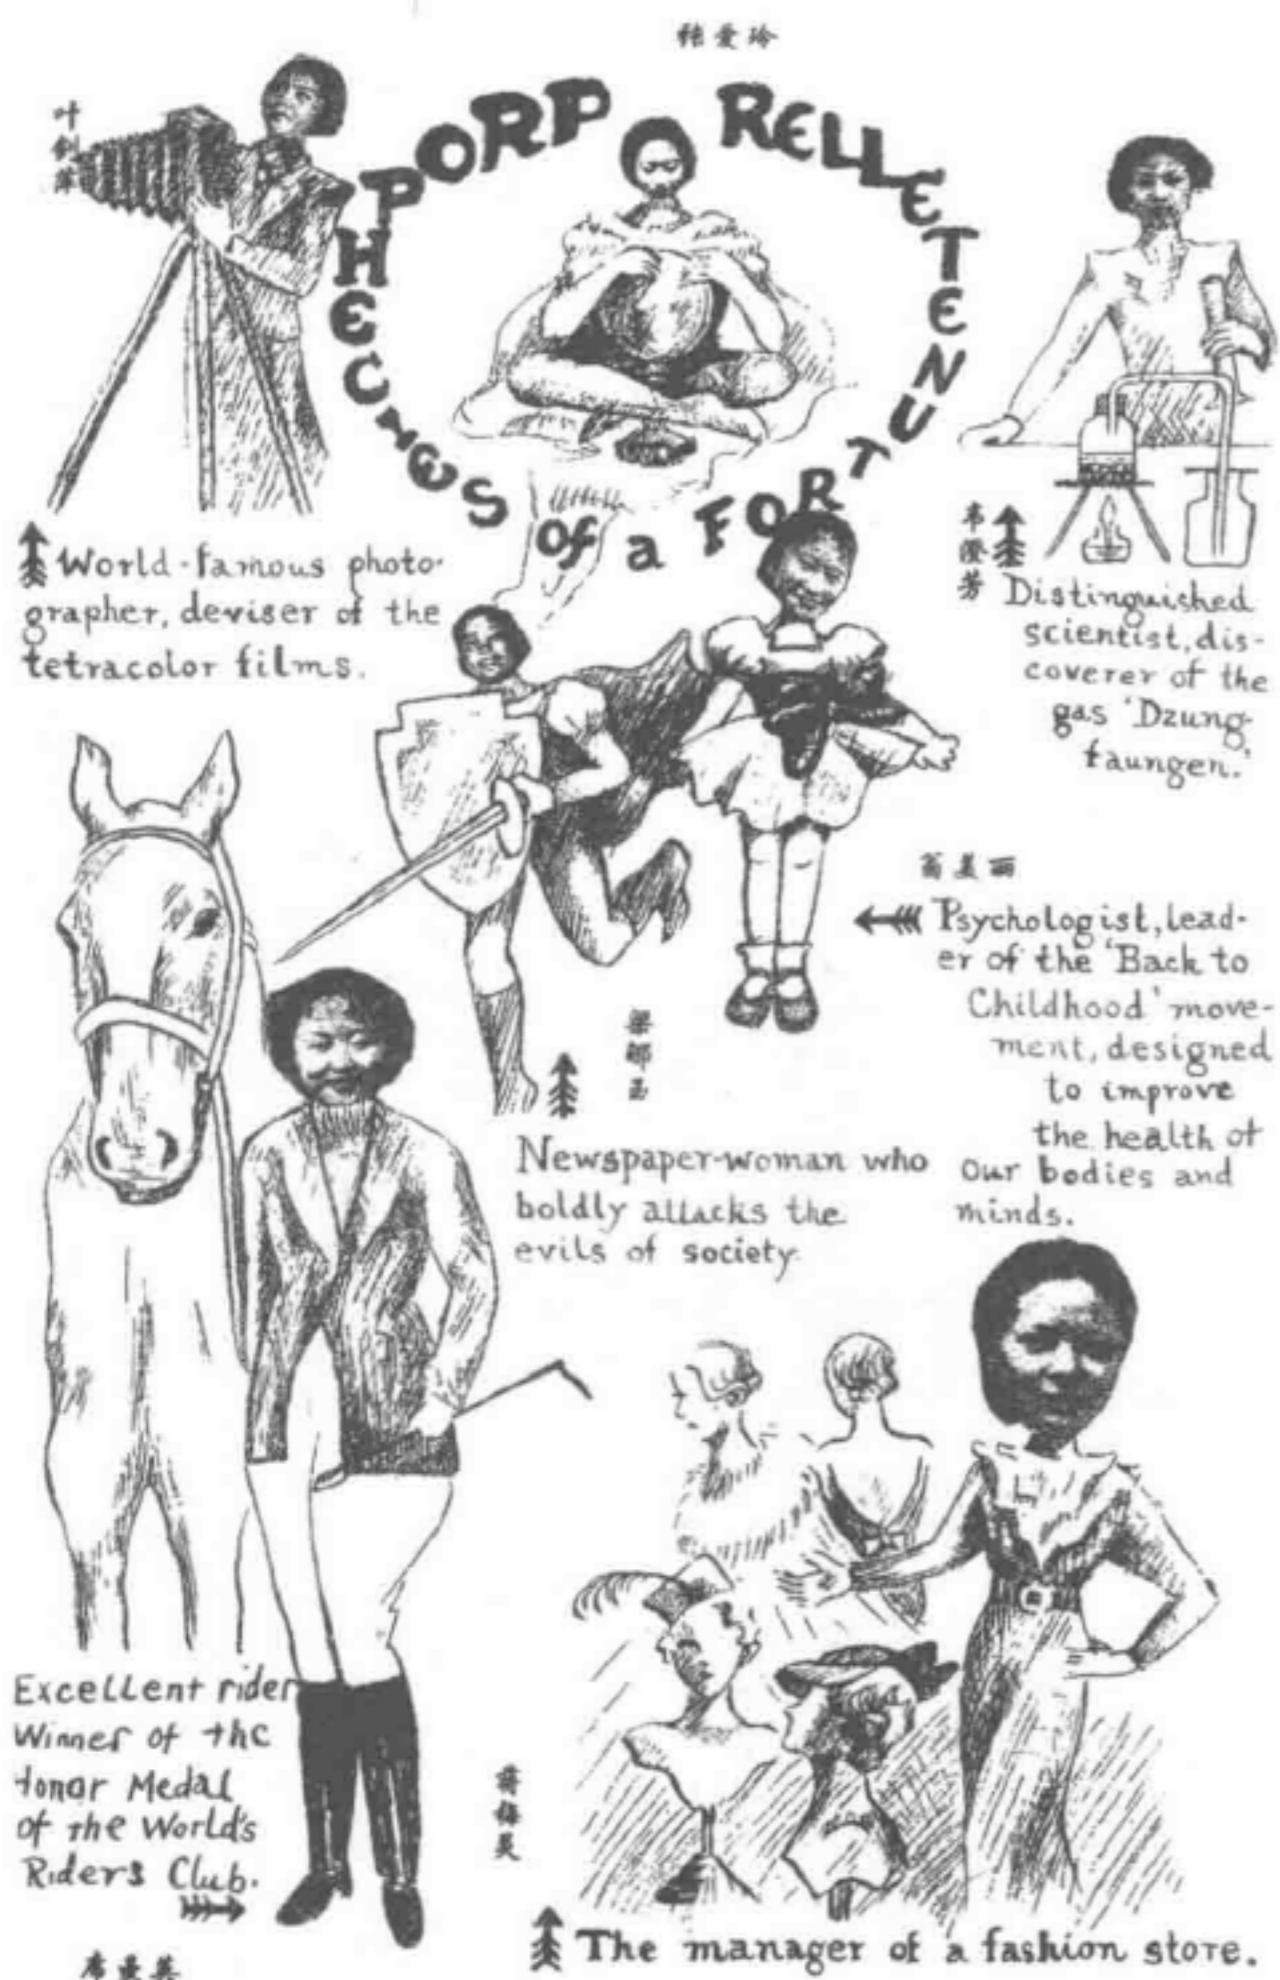 张爱玲
PROPHECIES of a FORTUNETELLER
World-famous photo-
grapher, deviser of the
tetracolor films.
韦澄芳
Distinguished
scientist, dis-
coverer of the
gas 'Dzung-
taungen.'
翁美丽
Psychologist, lead-
er of the 'Back to
Childhood' move-
ment, designed
to improve
the health of
our bodies and
minds.
Newspaper-woman who
boldly attacks the
evils of society.
Excellent rider
Winner of the
Honor Medal
of the World's
Riders Club.
The manager of a fashion store.